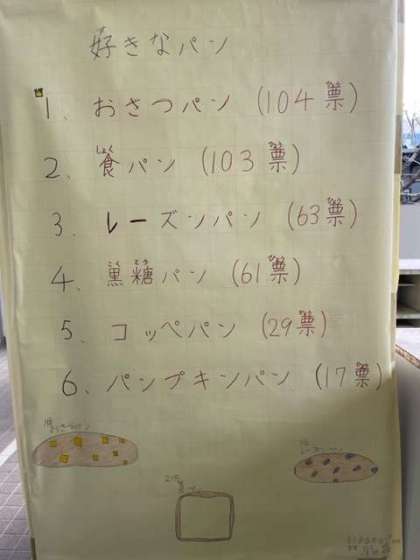 好きなパン
1、おさつパン (104票)
2、食パン (103票)
3、レーズンパン (63票)
4、黒糖パン (61票)
5、コッペパン (29票)
6、パンプキンパン (17票)